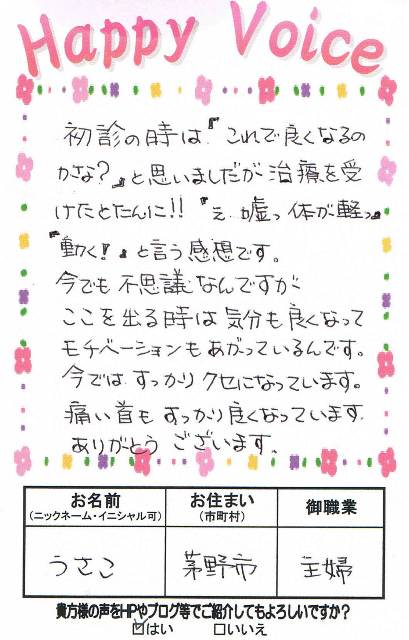 Happy Voice
初診の時は『これで良くなるの
かな?』と思いましだが治療を受
けたとたんに!!『え、嘘っ体が軽っ
『動く!』と言う感想です。
今でも不思議なんですが
ここを出る時は気分も良くなって
モチベーションもあがっているんです。
今では、すっかりクセになっています。
痛い首もすっかり良くなっています
ありがとうございます。
お名前 お住まい 御職業
(ニックネーム・イニシャル可) (市町村)
うさこ 茅野市 主婦
貴方様の声をHPやブログ等でご紹介してもよろしいですか?
☑はい □いいえ